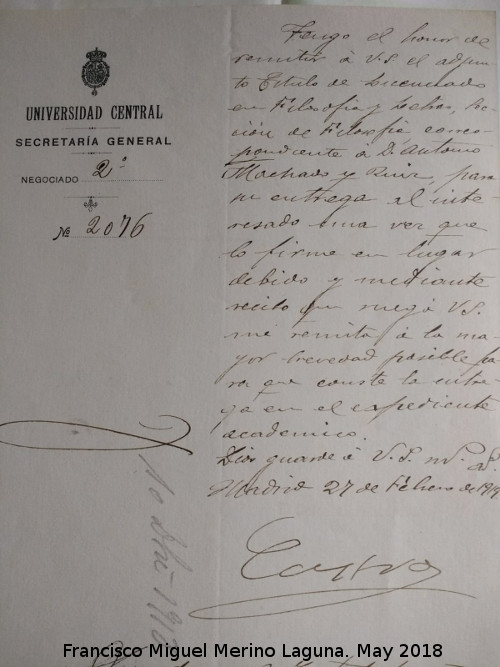 UNIVERSIDAD CENTRAL
SECRETARÍA GENERAL
NEGOCIADO 2º
№ 2076
Tengo el honor de
remitir á V.S. el adjun-
to Título de Licenciado
en Filosofía y Letras, Sec-
ción de Filosofía, corres-
pondiente á D. Antonio
Machado y Ruiz, para
su entrega al inte-
resado una vez que
lo firme en lugar
debido y mediante
recibo que ruego á V.S.
me remita á la ma-
yor brevedad posible pa-
ra que conste la entre-
ga en el expediente
académico.
Dios guarde á V.S. m.s a.s
Madrid 27 de Febrero de 191
Castro
Francisco Miguel Merino Laguna. May 2018